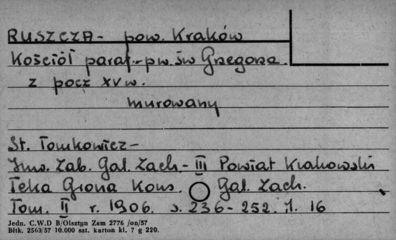 RUSZCZA - pow. Kraków
Kościół paraf. - pw. św Grzegorza
z pocz XV w.
murowany
St. Tomkowicz -
Inw. Zab. Gal. Zach - III Powiat Krakowski
Teka Grona Kons. Gal. Zach.
Tom. II r. 1906. s. 236 - 252. il. 16
Jedn. C.W.D B/Olsztyn Zam 2776 /on/57
Bétk. 2563/57 10.000 szt. karton kl. 7 g 220.